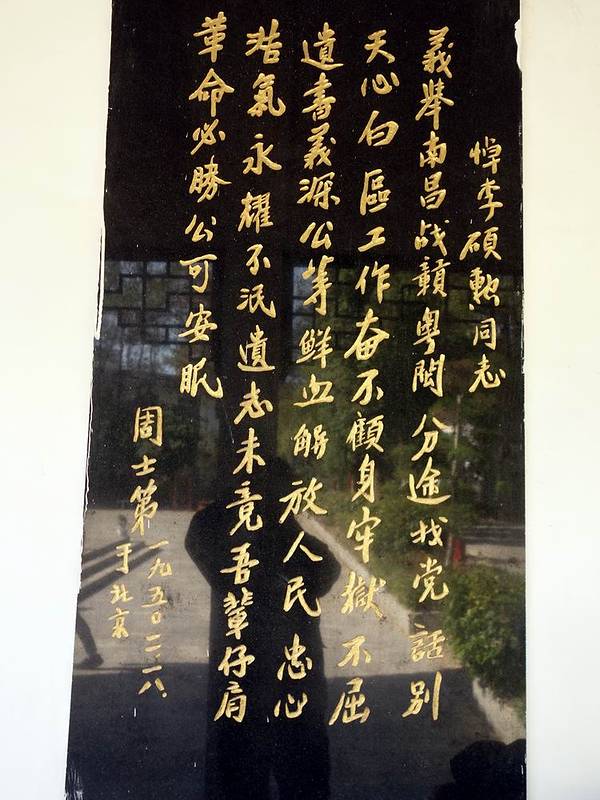 悼李硕勲同志
義举南昌战贛粤閩分途找党話别
天心白區工作奋不顧身牢獄不屈
遺書義深公等鮮血解放人民忠心
浩氣永耀不泯遺志未竟吾輩仔肩
革命必勝公可安眠
周士第一九五〇.二.二八.
于北京